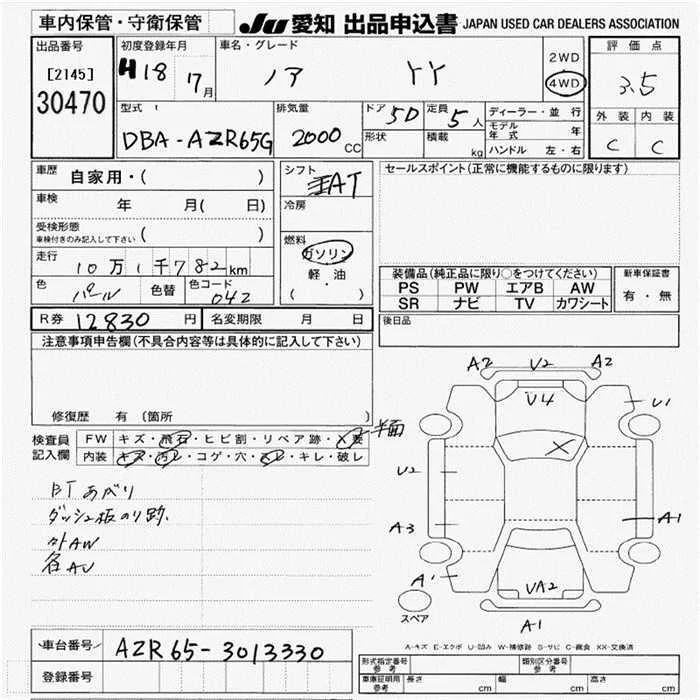 車内保管・守衛保管 JU 愛知 出品申込書 JAPAN USED CAR DEALERS ASSOCIATION
出品番号 [2145] 30470
初度登録年月 H18 7月
車名・グレード ノア YY
2WD 4WD
評価点 3.5
外装 内装
C C
型式 DBA-AZR65G
排気量 2000cc
ドア 5D 定員 5人
形状 積載 kg
ディーラー・並行
モデル年式 年
ハンドル 左・右
車歴 自家用・( )
車検 年 月( 日)
受検形態 車検付きのみ記入して下さい ( )
走行 10万1千782km
色 パール 色替 色コード 042
シフト AT
冷房
燃料 ガソリン
軽・油
( ・ )
セールスポイント(正常に機能するものに限ります)
装備品(純正品に限り○をつけてください) 新車保証書
PS PW エアB AW 有・無
SR ナビ TV カワシート
後日品
R券 12830円 名変期限 月 日
注意事項申告欄(不具合内容等は具体的に記入して下さい)
修復歴 有 (箇所 )
検査員記入欄 FW キズ・飛石・ヒビ割・リペア跡・X要 半面
内装 キズ・汚レ・コゲ・穴・スレ・キレ・破レ
BTあがり
ダッシュ板のり跡.
外AW
名AV
A2 V2 A2
V4 U1
X
U2
A3 A1
A1 VA2
A1
スペア
A-キズ E-エクボ U-凹み W-補修跡 S-サビ C-腐食 XX-交換済
車台番号 AZR65-3013330
登録番号
形式指定番号 参考 類別区分番号 参考
車庫証明用 参考 長さ cm 幅 cm 高さ cm